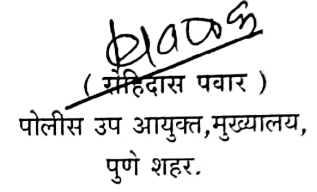 ( रोहिदास पवार )
पोलीस उप आयुक्त,मुख्यालय,
पुणे शहर.